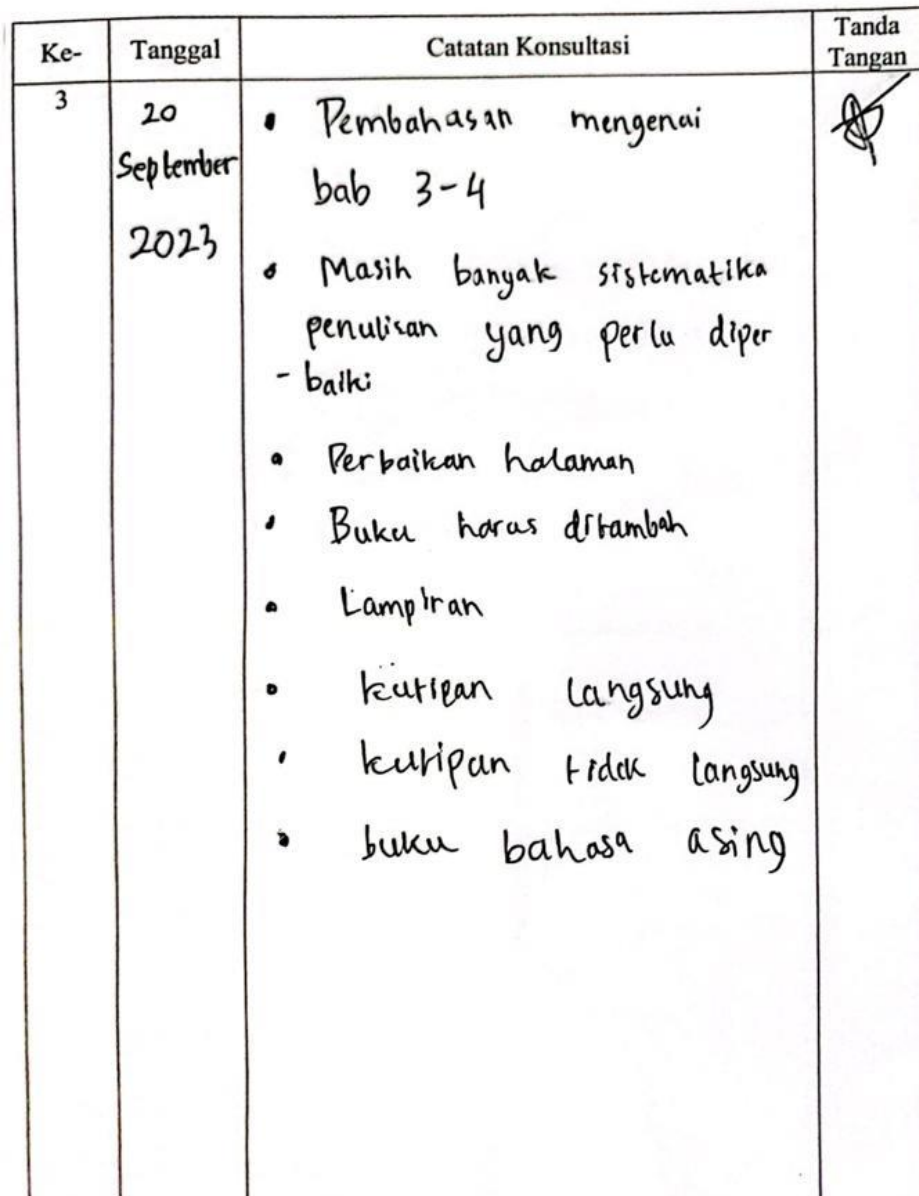 Ke- Tanggal Catatan Konsultasi Tanda Tangan
3
20
September
2023
• Pembahasan mengenai
bab 3-4
• Masih banyak sistematika
penulisan yang perlu diper
- baiki
• Perbaikan halaman
• Buku harus ditambah
• Lampiran
• kutipan langsung
• kutipan tidak langsung
• buku bahasa asing